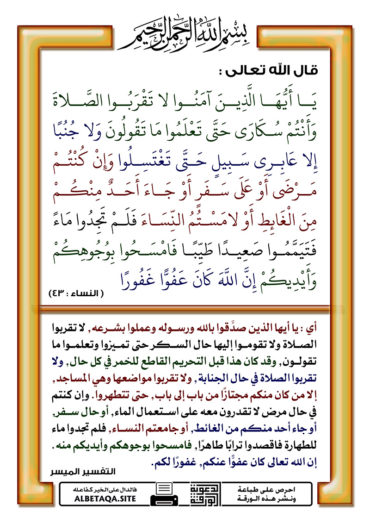 بِسْمِ اللَّهِ الرَّحْمَنِ الرَّحِيمِ
قال الله تعالى :
يَا أَيُّهَا الَّذِينَ آمَنُوا لا تَقْرَبُوا الصَّلاةَ
وَأَنْتُمْ سُكَارَى حَتَّى تَعْلَمُوا مَا تَقُولُونَ وَلا جُنُبًا
إِلا عَابِرِي سَبِيلٍ حَتَّى تَغْتَسِلُوا وَإِنْ كُنْتُمْ
مَرْضَى أَوْ عَلَى سَفَرٍ أَوْ جَاءَ أَحَدٌ مِنْكُمْ
مِنَ الْغَائِطِ أَوْ لامَسْتُمُ النِّسَاءَ فَلَمْ تَجِدُوا مَاءً
فَتَيَمَّمُوا صَعِيدًا طَيِّبًا فَامْسَحُوا بِوُجُوهِكُمْ
وَأَيْدِيكُمْ إِنَّ اللَّهَ كَانَ عَفُوًّا غَفُورًا
( النساء : ٤٣ )
أي : يا أيها الذين صدَّقوا بالله ورسوله وعملوا بشرعه , لا تقربوا
الصلاة ولا تقوموا إليها حال السكر حتى تميزوا وتعلموا ما
تقولون , وقد كان هذا قبل التحريم القاطع للخمر في كل حال , ولا
تقربوا الصلاة في حال الجنابة , ولا تقربوا مواضعها وهي المساجد ,
إلا من كان منكم مجتازًا من باب إلى باب , حتى تتطهروا . وإن كنتم
في حال مرض لا تقدرون معه على استعمال الماء , أو حال سفر,
أو جاء أحد منكم من الغائط , أو جامعتم النساء , فلم تجدوا ماء
للطهارة فاقصدوا ترابًا طاهرًا , فامسحوا بوجوهكم وأيديكم منه .
إن الله تعالى كان عفوًّا عنكم , غفورًا لكم .
التفسير الميسر
احرص على طباعة
ونشر هذه الورقة
الورقة الدعوية
فالدال على الخير كفاعله
ALBETAQA.SITE